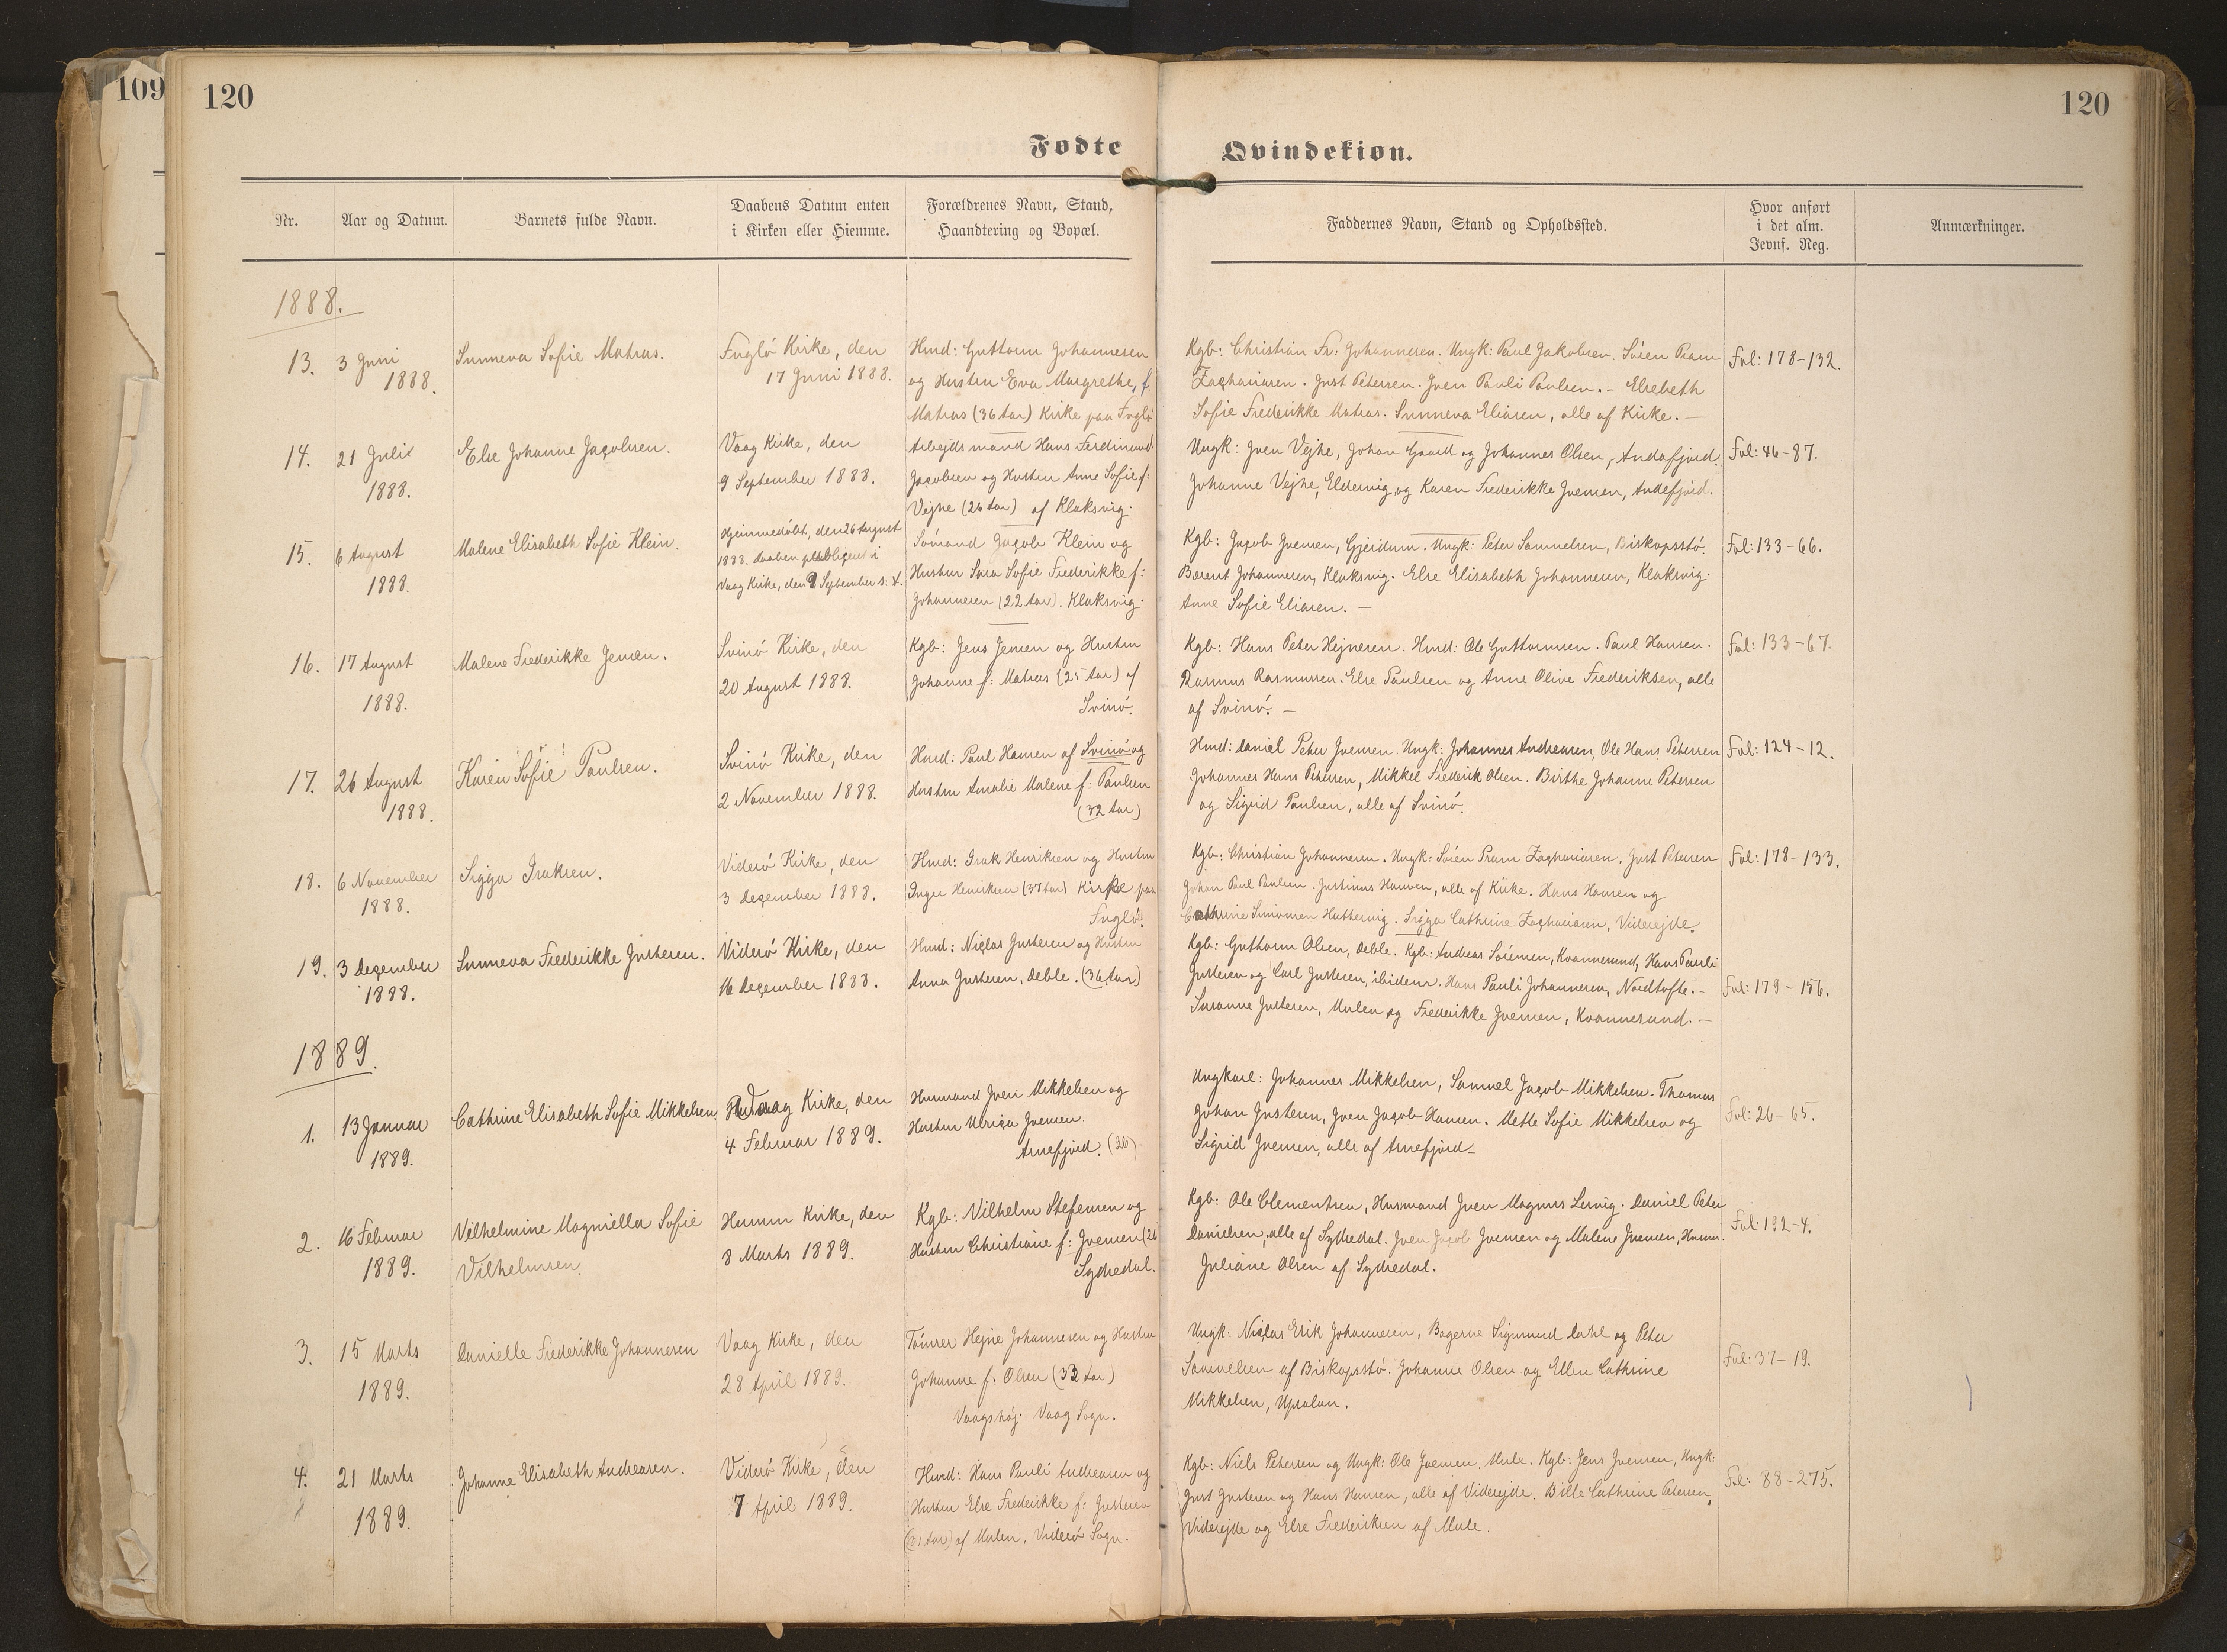 109
120
120
Fødte
Qvindekiøn.
Nr.
Aar og Datum.
Barnets fulde Navn.
Daabens Datum enten
i Kirken eller Hiemme.
Forældrenes Navn, Stand,
Haandtering og Bopæl.
Faddernes Navn, Stand og Opholdssted.
Hvor anført
i det alm.
Jevnf. Reg.
Anmærkninger.
1888.
13.
3 Juni
1888.
Sunneva Sofie Matras.
Fuglö Kirke, den
17 Juni 1888.
Hmd: Guttorm Johannesen
og Hustru Eva Margrethe, f
Matras (36 Aar) Kirke paa Fuglö
Kgb: Christian Fr: Johannesen. Ungk: Paul Jakobsen. Sören Pram
Zachariasen. Just Petersen. Joen Pauli Poulsen. – Elsebeth
Sofie Frederikke Matras. Sunneva Eliasen, alle af Kirke. –
Fol: 178-132.
14.
21 Juli
1888.
Else Johanne Jacobsen.
Vaag Kirke, den
9 September 1888.
Arbejdsmand Hans Ferdinand
Jacobsen og Hustru Anne Sofie f:
Vejhe (26 Aar) af Klaksvig.
Ungk: Joen Vejhe, Johan Gaard og Johannes Olsen, Andafjord.
Johanne Vejhe, Eldevig og Karen Frederikke Joensen, Andefjord.
Fol: 46-87.
15.
6 August
1888.
Malene Elisabeth Sofie Klein.
Hjemmedöbt, den 26 August
1888. Daaben publiceret i
Vaag Kirke, den 9 September s: A.
Sömand Jacob Klein og
Hustru Sara Sofie Frederikke f:
Johannesen (22 Aar). Klaksvig.
Kgb: Jacob Joensen, Gjerdum. Ungk: Peter Samuelsen, Biskopsstö.
Barent Johannesen, Klaksvig. Else Elisabeth Johannesen, Klaksvig.
Anne Sofie Eliasen. –
Fol: 133-66.
16.
17 August
1888.
Malene Frederikke Jensen.
Svinö Kirke, den
20 August 1888.
Kgb: Jens Jensen og Hustru
Johanne f: Matras (25 Aar) af
Svinö.
Kgb: Hans Peter Hejnesen. Hmd: Ole Guttormsen. Paul Hansen.
Rasmus Rasmussen. Else Paulsen og Anne Olive Frederiksen, alle
af Svinö. –
Fol: 133-67.
17.
26 August
1888.
Karen Sofie Paulsen.
Svinö Kirke, den
2 November 1888.
Hmd: Paul Hansen af Svinö og
Hustru Amalie Malene f: Paulsen
(32 Aar)
Hmd: Daniel Peter Joensen. Ungk: Johannes Andreasen, Ole Hans Petersen
Johannes Hans Petersen, Mikkel Frederik Olsen. Birthe Johanne Petersen
og Sigrid Paulsen, alle af Svinö.
Fol: 124-12.
18.
6 November
1888.
Sigga Isaksen.
Viderö Kirke, den
3 December 1888.
Hmd: Isak Henriksen og Hustru
Inger Henriksen (37 Aar) Kirke paa
Fuglö.
Kgb: Christian Johannesen. Ungk: Sören Pram Zachariasen. Just Petersen
Johan Paul Paulsen. Justinus Hansen, alle af Kirke. Hans Hansen og
Cathrine Simonsen Hattervig. Sigga Cathrine Zachariasen, Viderejde.
Fol: 178-133.
19.
3 December
1888.
Sunneva Frederikke Justesen.
Viderö Kirke, den
16 December 1888.
Hmd: Niclas Justesen og Hustru
Anna Justesen, Deble. (36 Aar)
Kgb: Guttorm Olsen, Deble. Kgb: Andreas Sörensen, Kvannesund, Hans Pauli
Justesen og Carl Justesen, ibidem. Hans Pauli Johannesen, Nordtofte. –
Susanne Justesen, Mulen og Frederikke Joensen, Kvannesund. –
Fol: 179-156.
1889.
1.
13 Januar
1889.
Cathrine Elisabeth Sofie Mikkelsen
Vaag Kirke, den
4 Februar 1889.
Husmand Joen Mikkelsen og
Hustru Ulrica Joensen.
Arnefjord. (26)
Ungkarl: Johannes Mikkelsen, Samuel Jacob Mikkelsen. Thomas
Johan Justesen, Joen Jacob Hansen. Mette Sofie Mikkelsen og
Sigrid Joensen, alle af Arnefjord –
Fol: 26-65.
2.
16 Februar
1889.
Vilhelmine Magniella Sofie
Vilhelmsen.
Husum Kirke, den
8 Marts 1889.
Kgb: Vilhelm Stefensen og
Hustru Christiane f: Joensen (26
Sydredal.
Kgb: Ole Clementsen, Husmand Joen Magnus Lervig. Daniel Peter
Danielsen, alle af Sydredal. Joen Jacob Joensen og Malene Joensen, Husum.
Juliane Olsen af Sydredal.
Fol: 192-4.
3.
15 Marts
1889.
Danielle Frederikke Johannesen
Vaag Kirke, den
28 April 1889.
Tömrer Hejne Johannesen og Hustru
Johanne f: Olsen (33 Aar)
Vaagshöj. Vaag Sogn.
Ungk: Niclas Erik Johannesen, Bagerne Sigmund Dahl og Peter
Samuelsen af Biskopsstö. Johanne Olsen og Ellen Cathrine
Mikkelsen, Upsalan.
Fol: 37-19.
4.
21 Marts
1889.
Johanne Elisabeth Andreasen.
Viderö Kirke, den
7 April 1889.
Hmd: Hans Pauli Andreasen og
Hustru Else Frederikke f: Justesen
af Mulen, Viderö Sogn.
Kgb: Niels Petersen og Ungk: Ole Joensen, Mule. Kgb: Jens Joensen, Ungk:
Just Justesen og Hans Hansen, alle af Viderejde. Bille Cathrine Petersen,
Viderejde og Else Frederiksen af Mule.
Fol: 88-275.